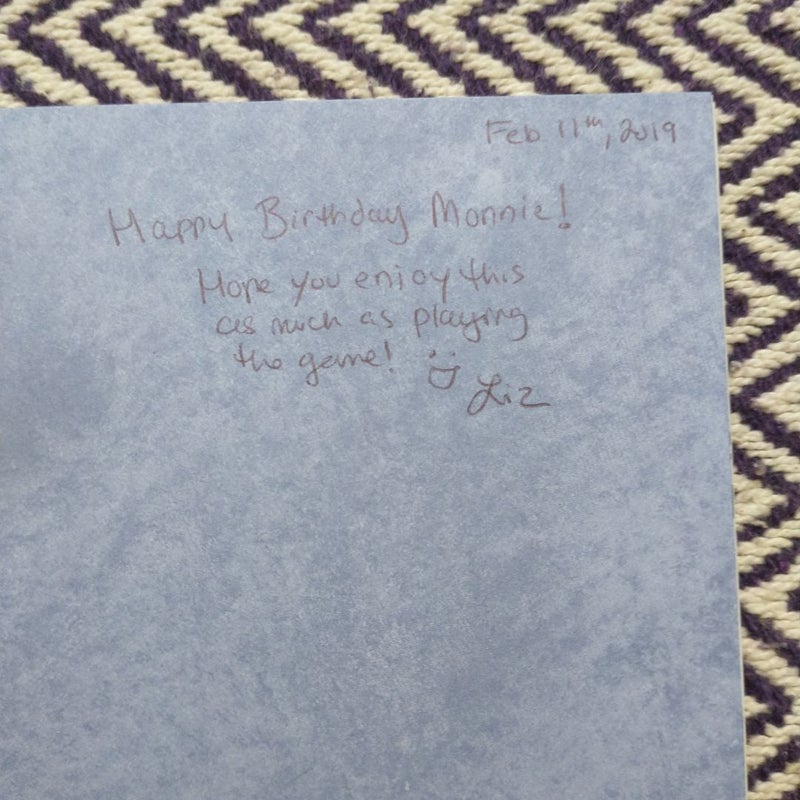 Feb 11th, 2019
Happy Birthday Monnie!
Hope you enjoy this
as much as playing
the game!
Liz